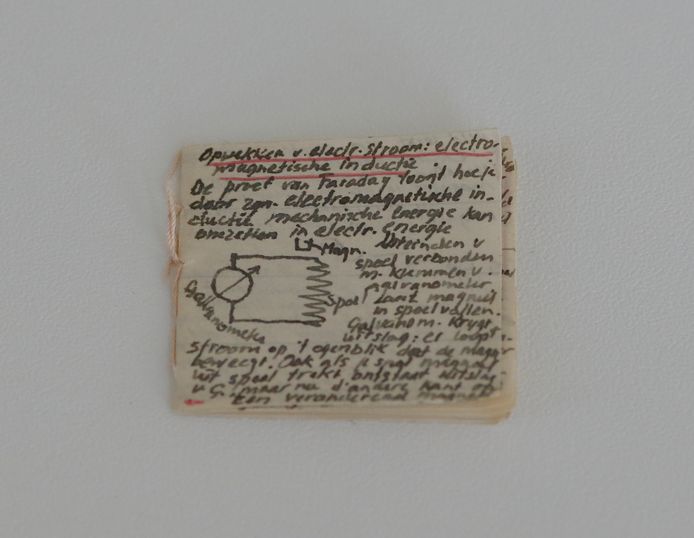 Opwekken v. electr. Stroom: electro-
magnetische inductie
De proef van Faraday toont hoe
door zgn. electromagnetische in-
ductie mechanische energie kan
omzetten in electr. energie
Magn.
Uiteinden v
spoel verbonden
m. klemmen v.
galvanometer
Laat magneet
in spoel vallen.
Galvanom. krijgt
uitslag: er loopt
Galvanometer
Spoel
Stroom op 't ogenblik dat de magn
beweegt. Ook als je snel magneet
uit spoel trekt ontstaat uitslag
v G. maar nu d'andere kant op.
Een veranderend magneet